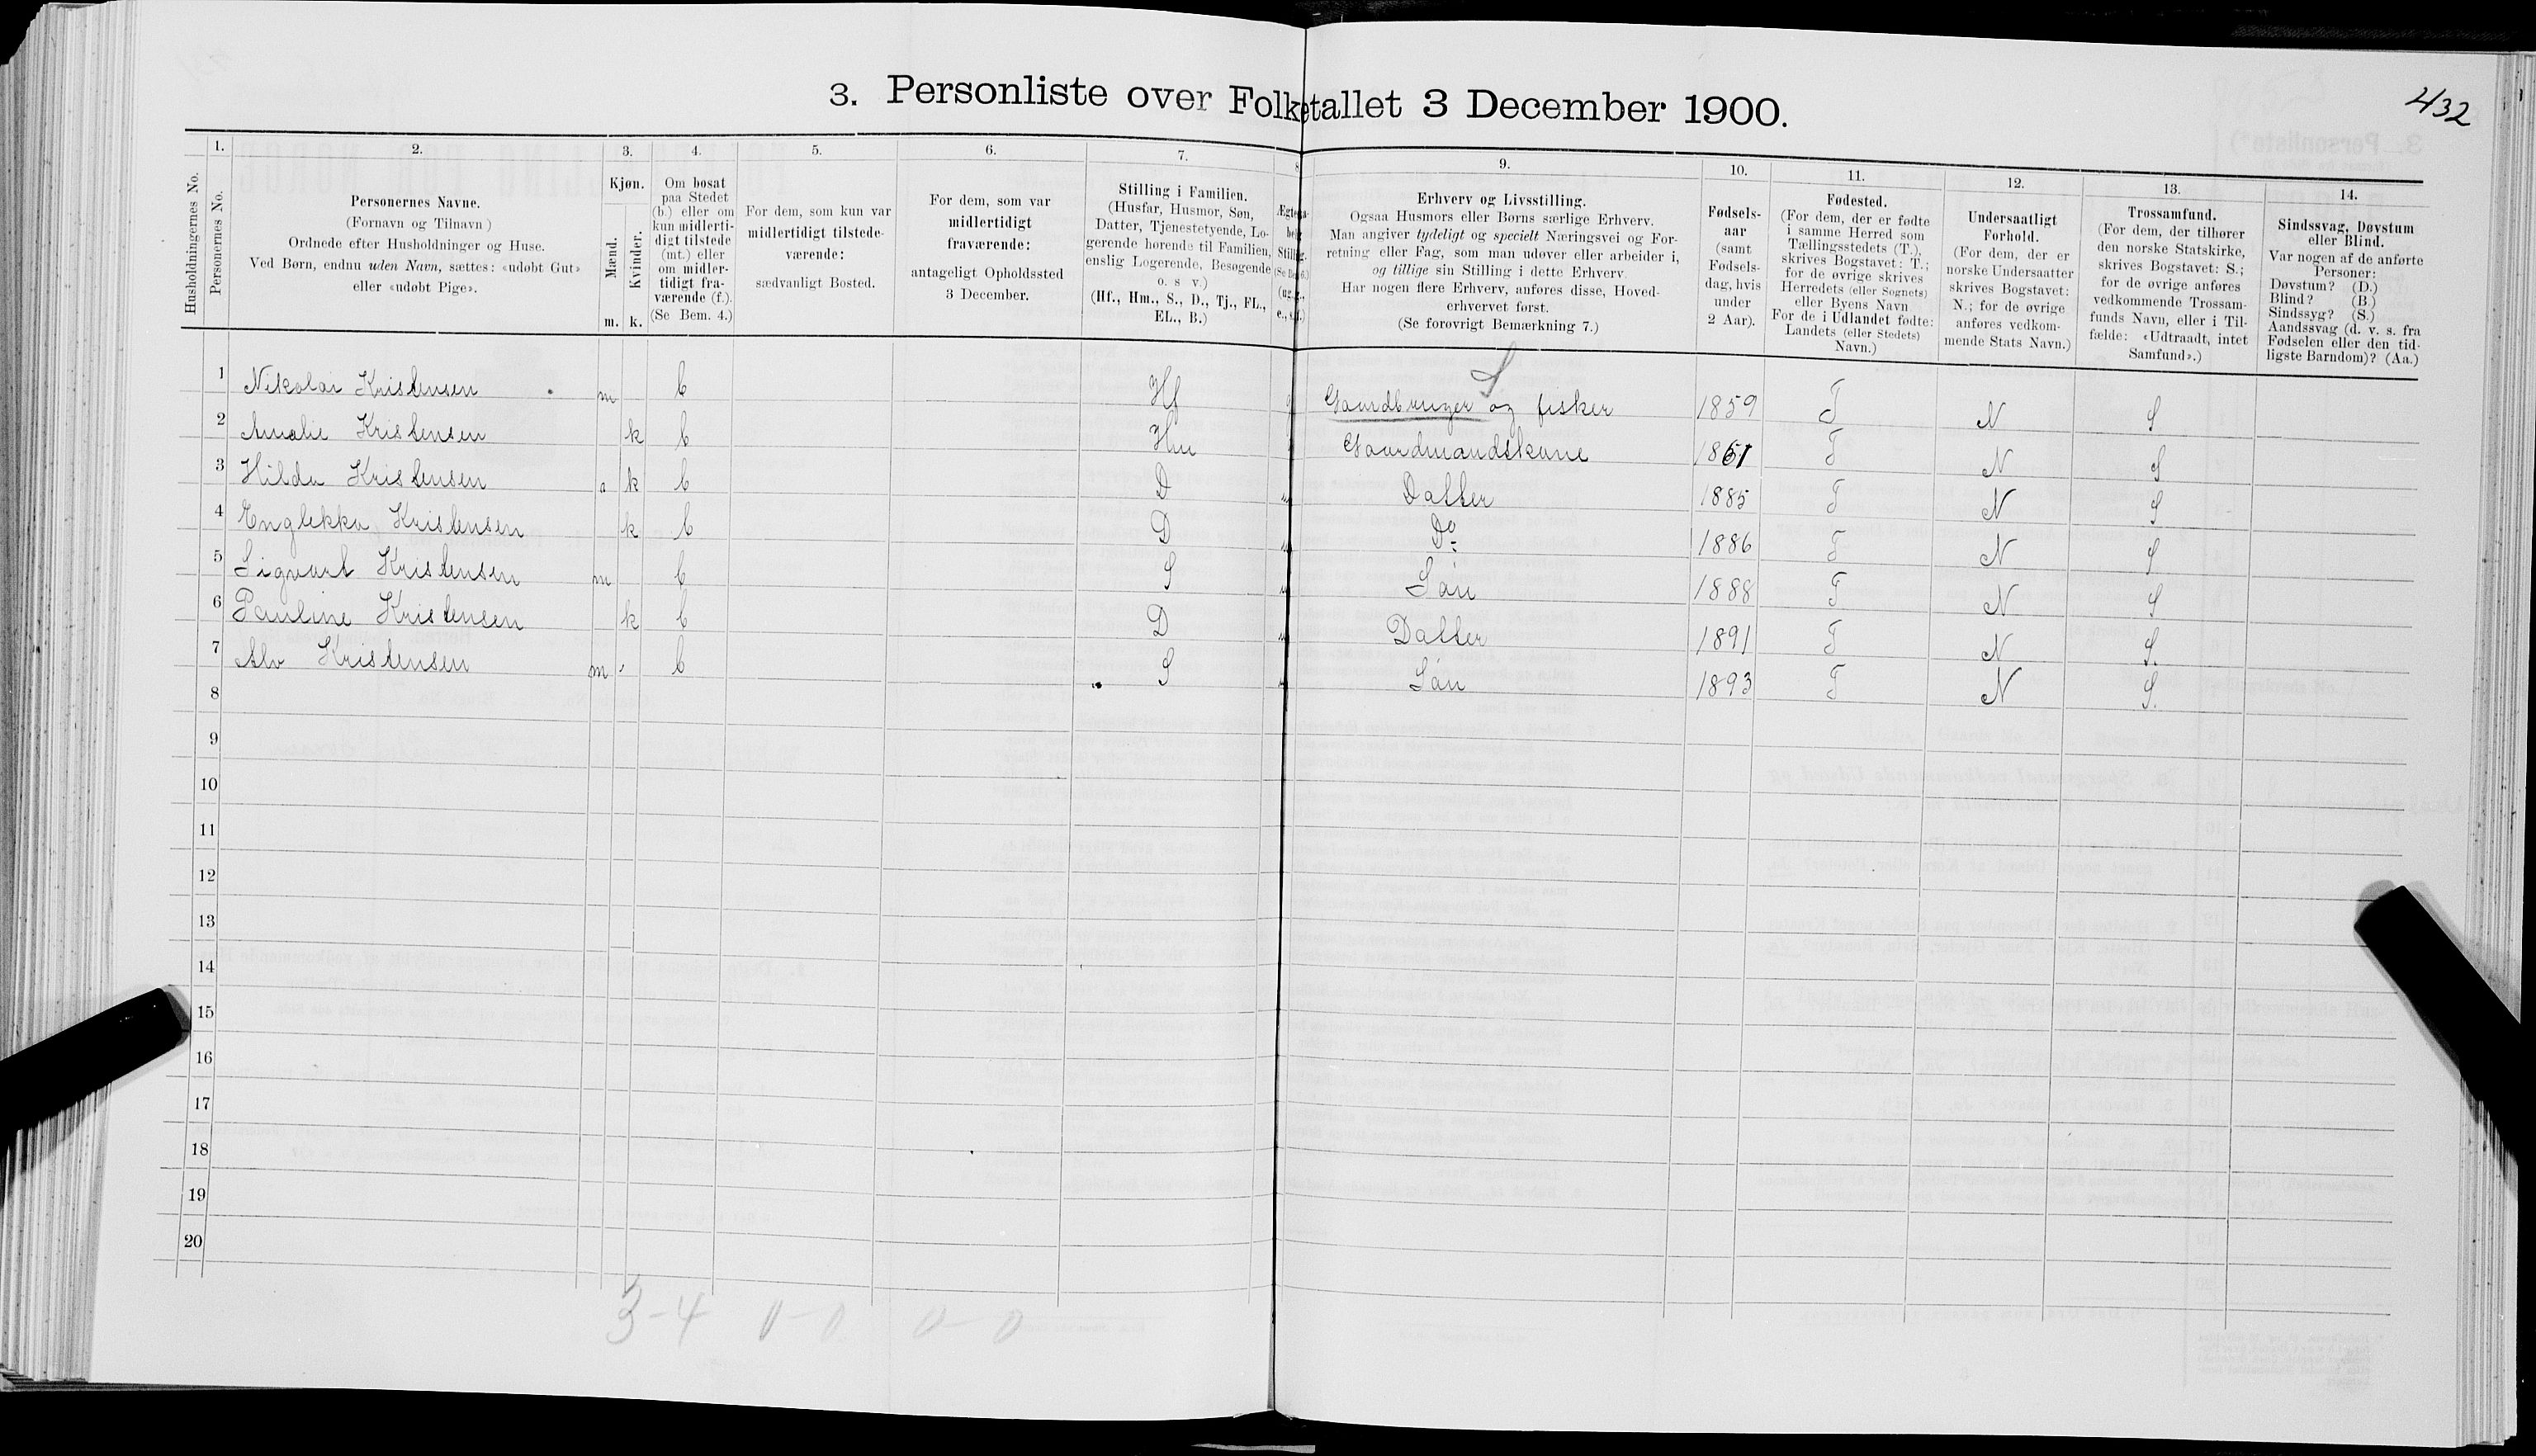 432
3. Personliste over Folketallet 3 December 1900.
1. 2. 3. 4. 5. 6. 7. 8 9. 10. 11. 12. 13. 14.
Husholdningernes No.
Personernes No.
Personernes Navne.
(Fornavn og Tilnavn)
Ordnede efter Husholdninger og Huse.
Ved Børn, endnu uden Navn, sættes: «udøbt Gut»
eller «udøbt Pige».
Kjøn.
Mænd.
Kvinder.
m. k.
Om bosat
paa Stedet
(b.) eller om
kun midlerti-
digt tilstede
(mt.) eller
om midler-
tidigt fra-
værende (f.).
(Se Bem. 4.)
For dem, som kun var
midlertidigt tilstede-
værende:
sædvanligt Bosted.
For dem, som var
midlertidigt
fraværende:
antageligt Opholdssted
3 December.
Stilling i Familien.
(Husfar, Husmor, Søn,
Datter, Tjenestetyende, Lo-
gerende hørende til Familien,
enslig Logerende, Besøgende
o. s v.)
(Hf., Hm., S., D., Tj., FL.,
EL., B.)
Erhverv og Livsstilling.
Ogsaa Husmors eller Børns særlige Erhverv.
Man angiver tydeligt og specielt Næringsvei og For-
retning eller Fag, som man udøver eller arbeider i,
og tillige sin Stilling i dette Erhverv.
Har nogen flere Erhverv, anføres disse, Hoved-
erhvervet først.
(Se forøvrigt Bemærkning 7.)
Fødsels-
aar
(samt
Fødsels-
dag, hvis
under
2 Aar).
Fødested.
(For dem, der er fødte
i samme Herred som
Tællingsstedets (T.),
skrives Bogstavet: T.;
for de øvrige skrives
Herredets (eller Sognets)
eller Byens Navn
For de i Udlandet fødte:
Landets (eller Stedets)
Navn.)
Undersaatligt
Forhold.
(For dem, der er
norske Undersaatter
skrives Bogstavet:
N.; for de øvrige
anføres vedkom-
mende Stats Navn.)
Trossamfund.
(For dem, der tilhører
den norske Statskirke,
skrives Bogstavet: S.;
for de øvrige anføres
vedkommende Trossam-
funds Navn, eller i Til-
fælde: «Udtraadt, intet
Samfund».)
Sindssvag, Døvstum
eller Blind.
Var nogen af de anførte
Personer:
Døvstum? (D.)
Blind? (B.)
Sindssyg? (S.)
Aandssvag (d. v. s. fra
Fødselen eller den tid-
ligste Barndom)? (Aa.)
S
1 Nikolai Kristensen m b Hf g Gaardbruger og fisker 1859 T N S
2 Amalie Kristensen k b Hm Gaardmandskone 1861 T N S
3 Hilda Kristensen k b D u Datter 1885 T N S
4 Englekka Kristensen k b D u Do 1886 T N S
5 Sigvart Kristensen m b S u Søn 1888 T N S
6 Pauline Kristensen k b D u Datter 1891 T N S.
7 Alv Kristensen m b S u Søn 1893 T N S.
8
9
10
11
12
13
14
15
16
17
18
19
20
3-4 0-0 0-0